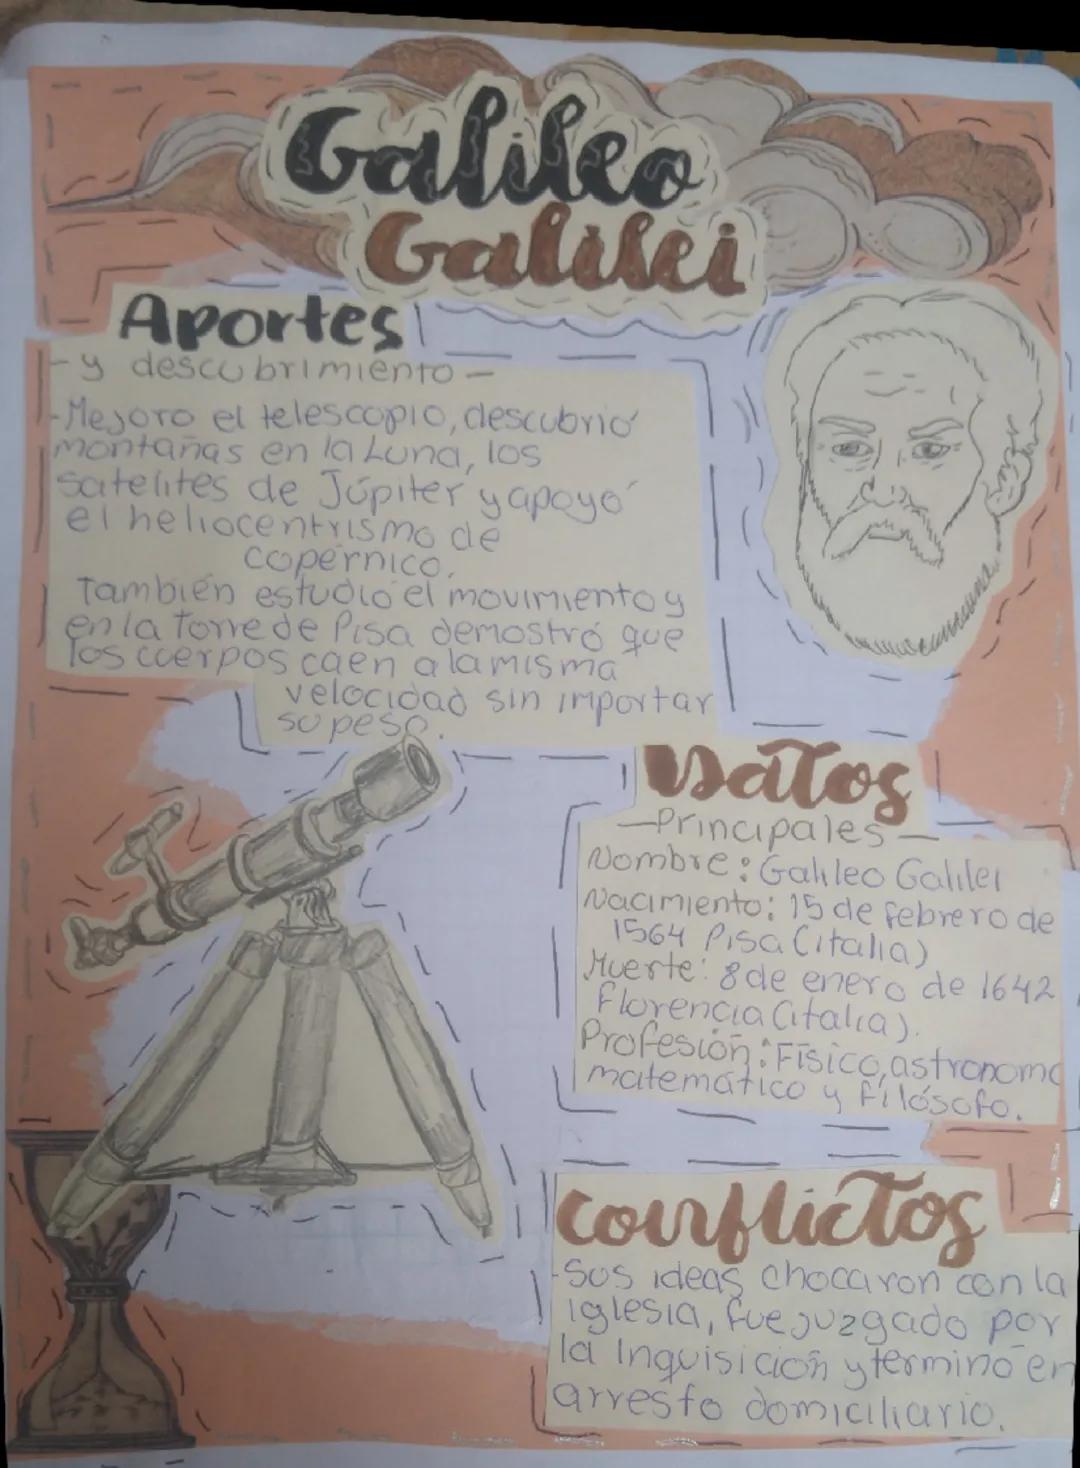 Galileo
Galilei
Aportes
- y descubrimiento -
- Mejoro el telescopio, descubrió
montañas en la Luna, los
satelites de Júpiter y apoyó
el heliocentrismo de
copérnico.
También estudió el movimiento y
en la Torre de Pisa demostró que
los cuerpos caen a la misma
velocidad sin importar
su peso.
Datos
- Principales -
Nombre: Galileo Galilei
Nacimiento: 15 de febrero de
1564 Pisa (italia)
Muerte: 8 de enero de 1642
Florencia (italia).
Profesión: Físico, astronomo
matemático y filósofo.
conflictos
- Sus ideas chocaron con la
iglesia, fue juzgado por
la Inquisición y terminó en
arresto domiciliario.